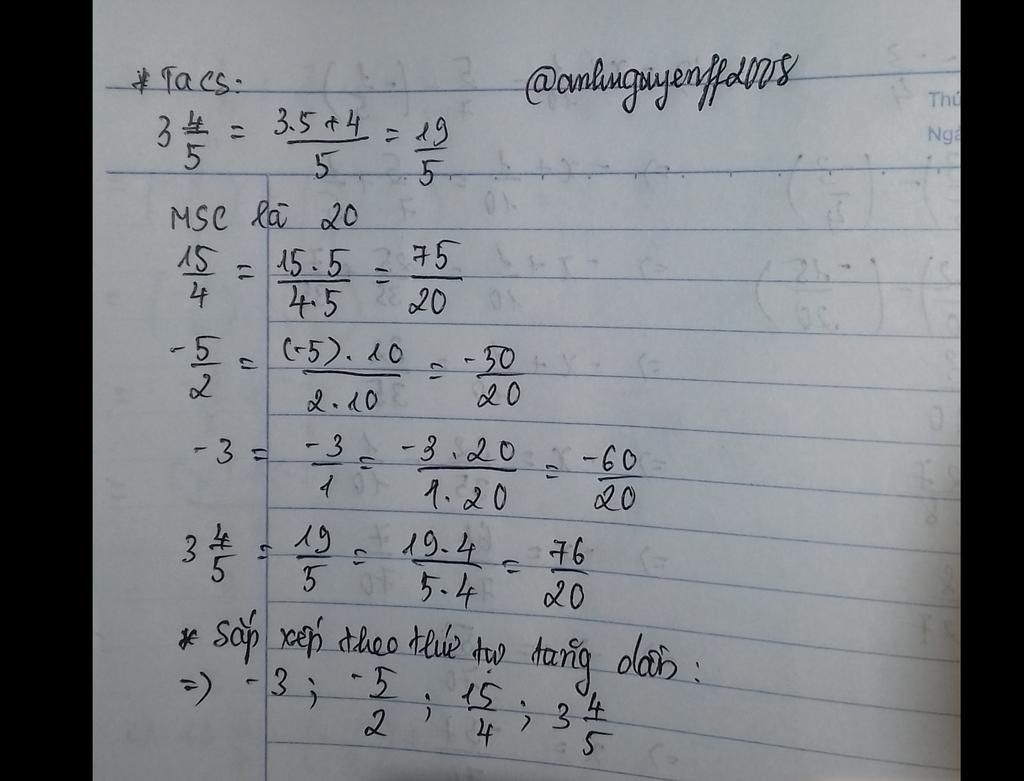 * Tacs:
@anhnguyenff2008
3 4/5 = 3.5+4/5 = 19/5
Thứ
Ngà
MSC là 20
15/4 = 15.5/4.5 = 75/20
-5/2 = (-5).10/2.10 = -50/20
-3 = -3/1 = -3.20/1.20 = -60/20
3 4/5 = 19/5 = 19.4/5.4 = 76/20
* Sắp xếp theo thứ tự tăng dần:
=) -3 ; -5/2 ; 15/4 ; 3 4/5